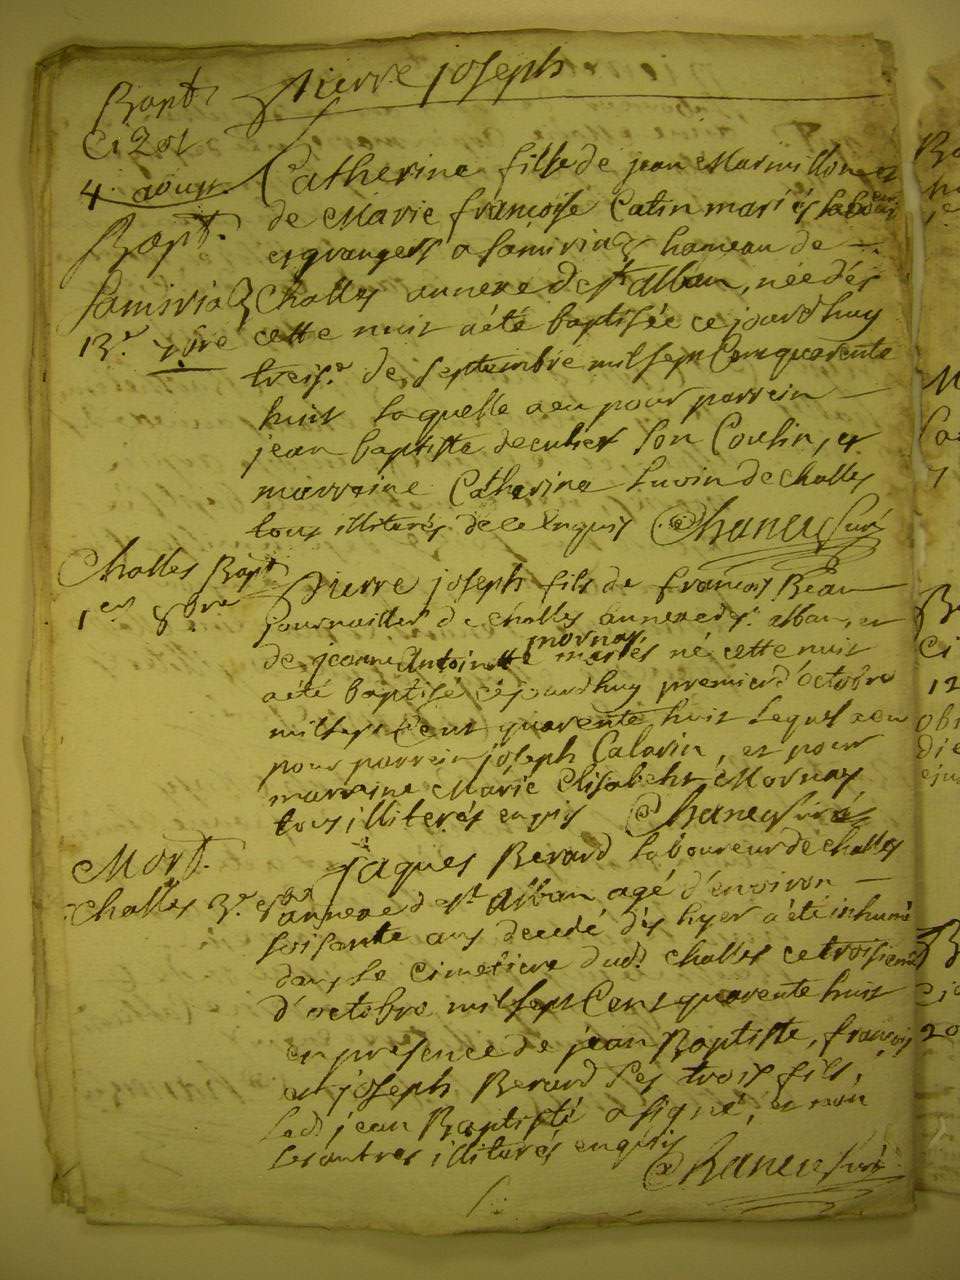 Bapt.
Cizol
4 aoust
Pierre joseph
Bapt.
Samiriaz
13.e 7bre
Catherine fille de jean Marmillion et
de Marie francoise Catin mariés laboeur
et grangers a Samiriaz hameau de
Challes annexe de St. Alban, née dés
cette nuit a été baptisée ce jourdhuy
treis.e de Septembre mil sept Cent quarente
huit laquelle a eu pour parrein
jean baptiste decuhier Son Cousin, et
marreine Catherine Luvin de Challes
tous illiterés de ce enquis Chaneu Curé
Challes Bapt
1er 8bre
Pierre joseph fils de francois Beau
journailler de Challes annexe de St. alban, et
de jeanne Antoinette mornay mariés né cette nuit
a été baptisé cejourdhuy premier d'octobre
mil sept Cent quarente huit lequel a eu
pour parrein joseph Calarin, et pour
marreine Marie Elisabeht Mornay
tous illiterés enquis Chaneu Curé
Mort.
Challes 3.e 8bre
jaques Berard laboureur de Challes
annexe de St. Alban agé d'environ
soisante ans decedé dés hyer a été inhumé
dans le Cimetiere dud. Challes ce troisieme
d'octobre mil sept Cent quarente huit
en presence de jean Baptiste, francois
et joseph Berard ses trois fils,
led. jean Baptiste a signé, et non
les autres illiterés enquis
Chaneu Curé